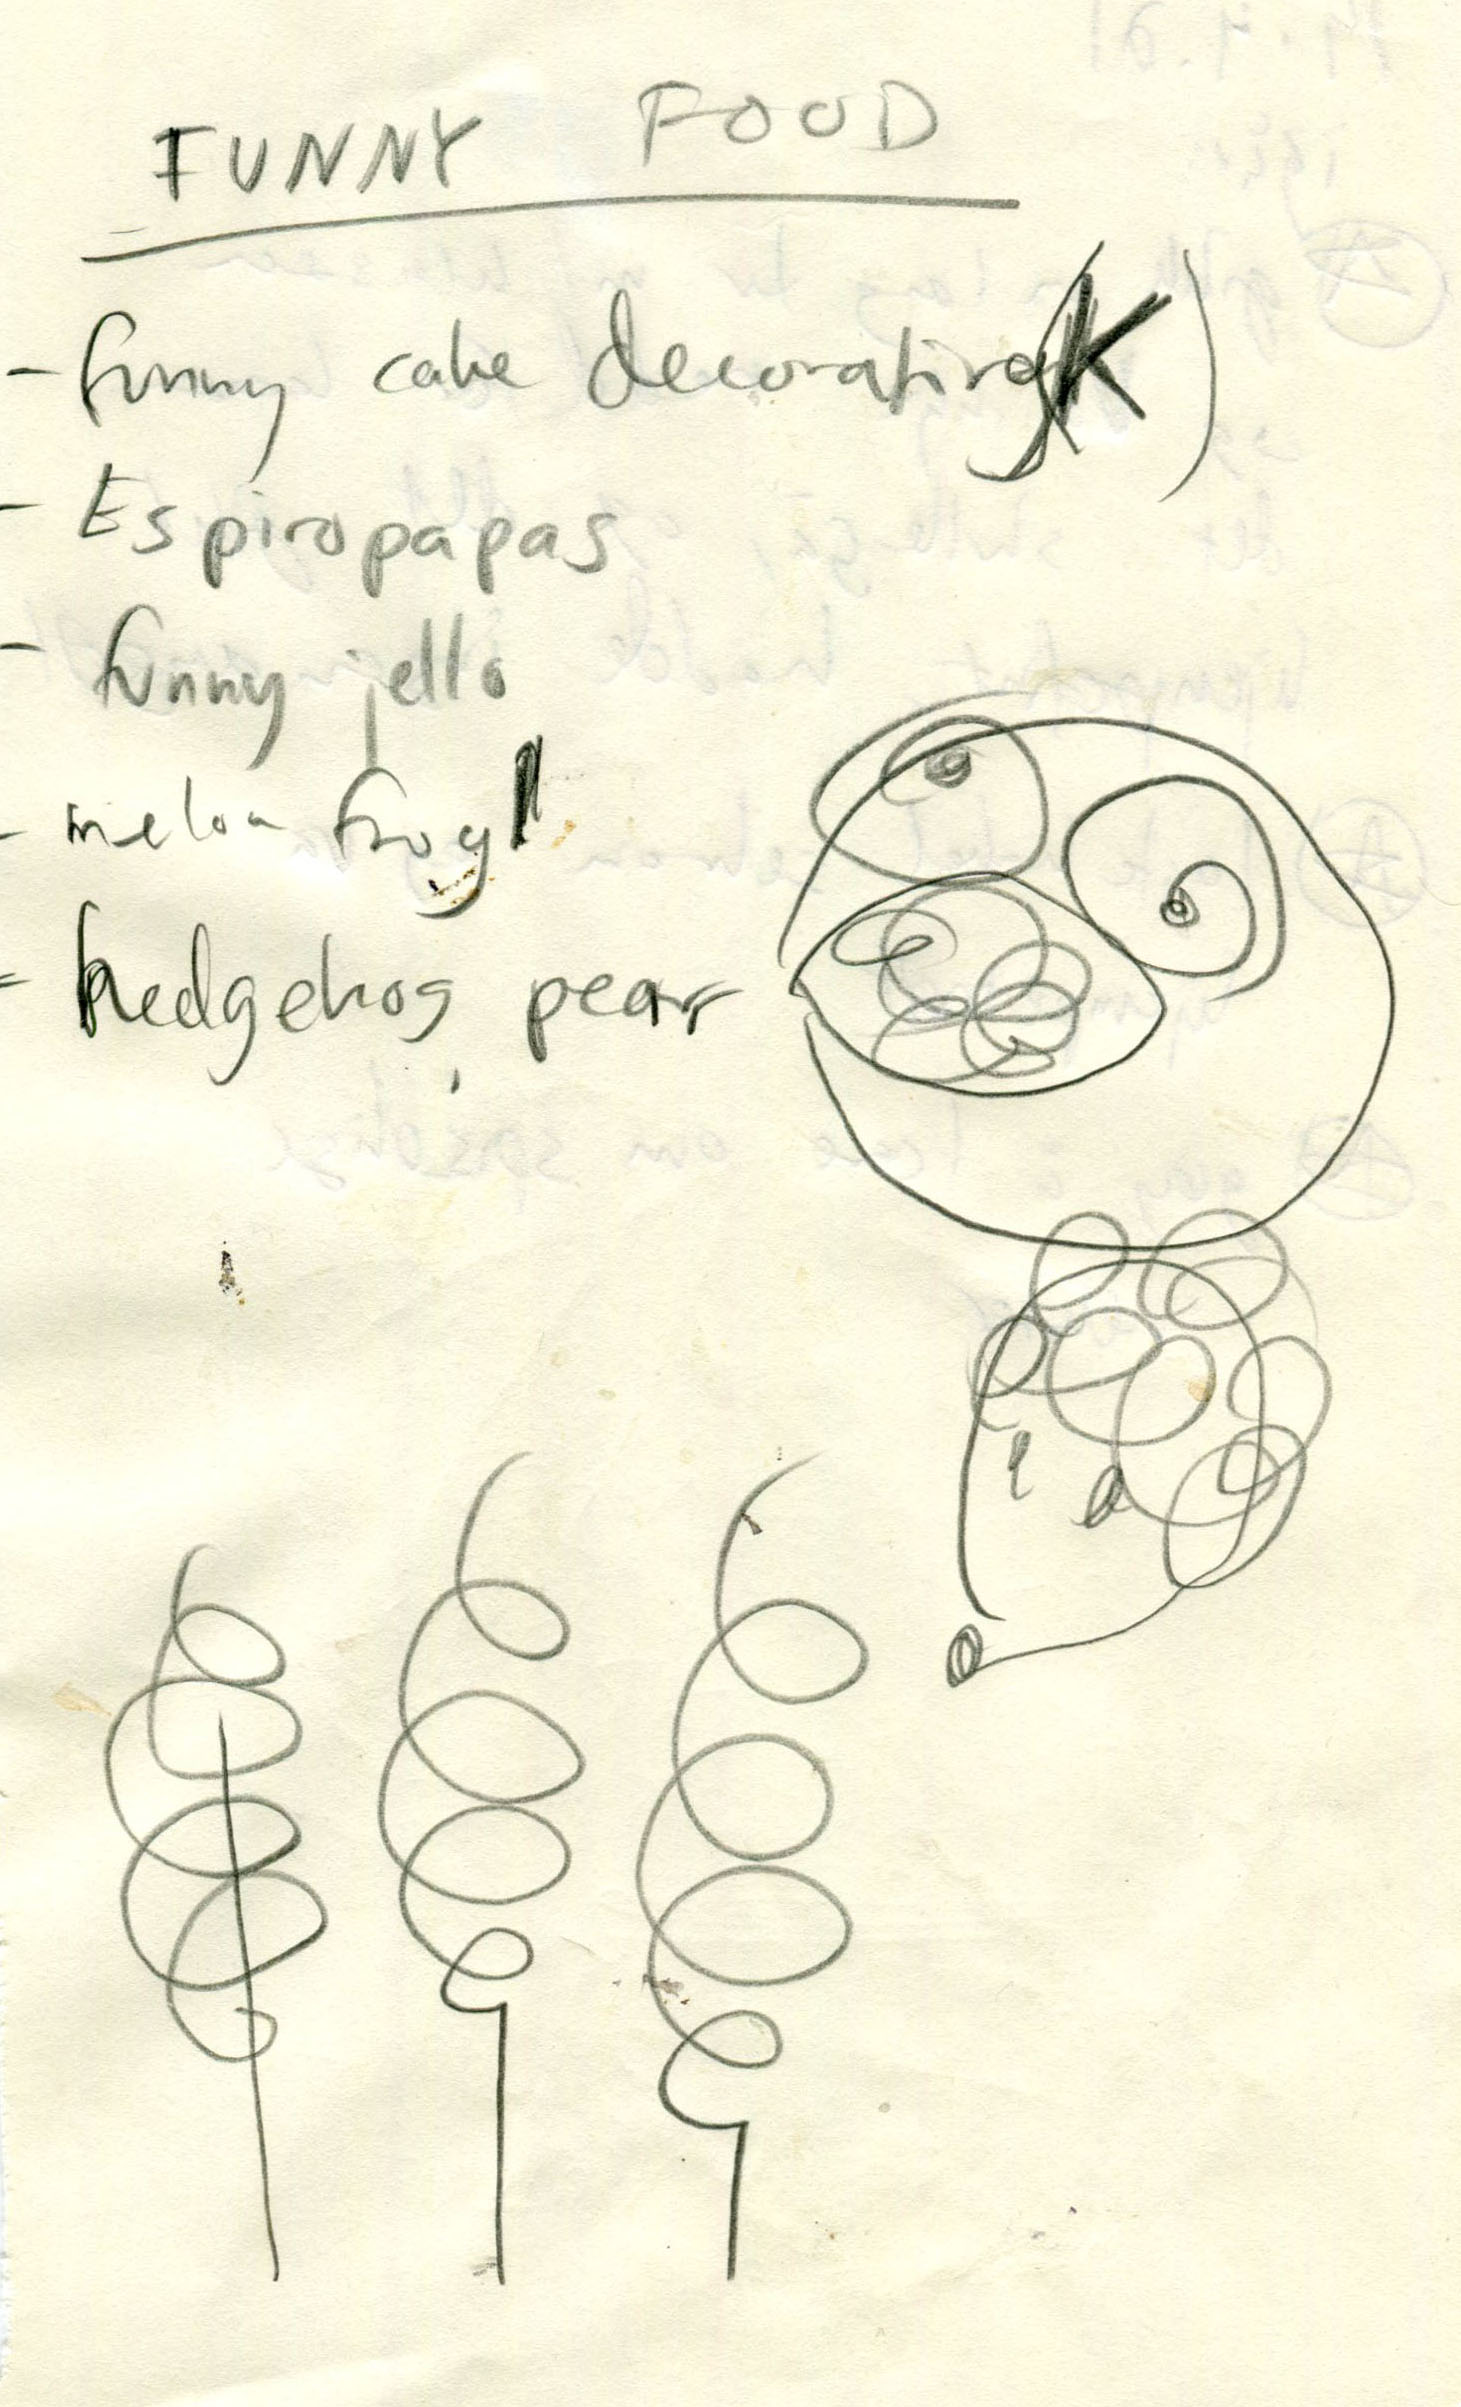 FUNNY FOOD
- funny cake decorating (K)
- Espiropapas
- funny jello
- melon frog
- hedgehog pear